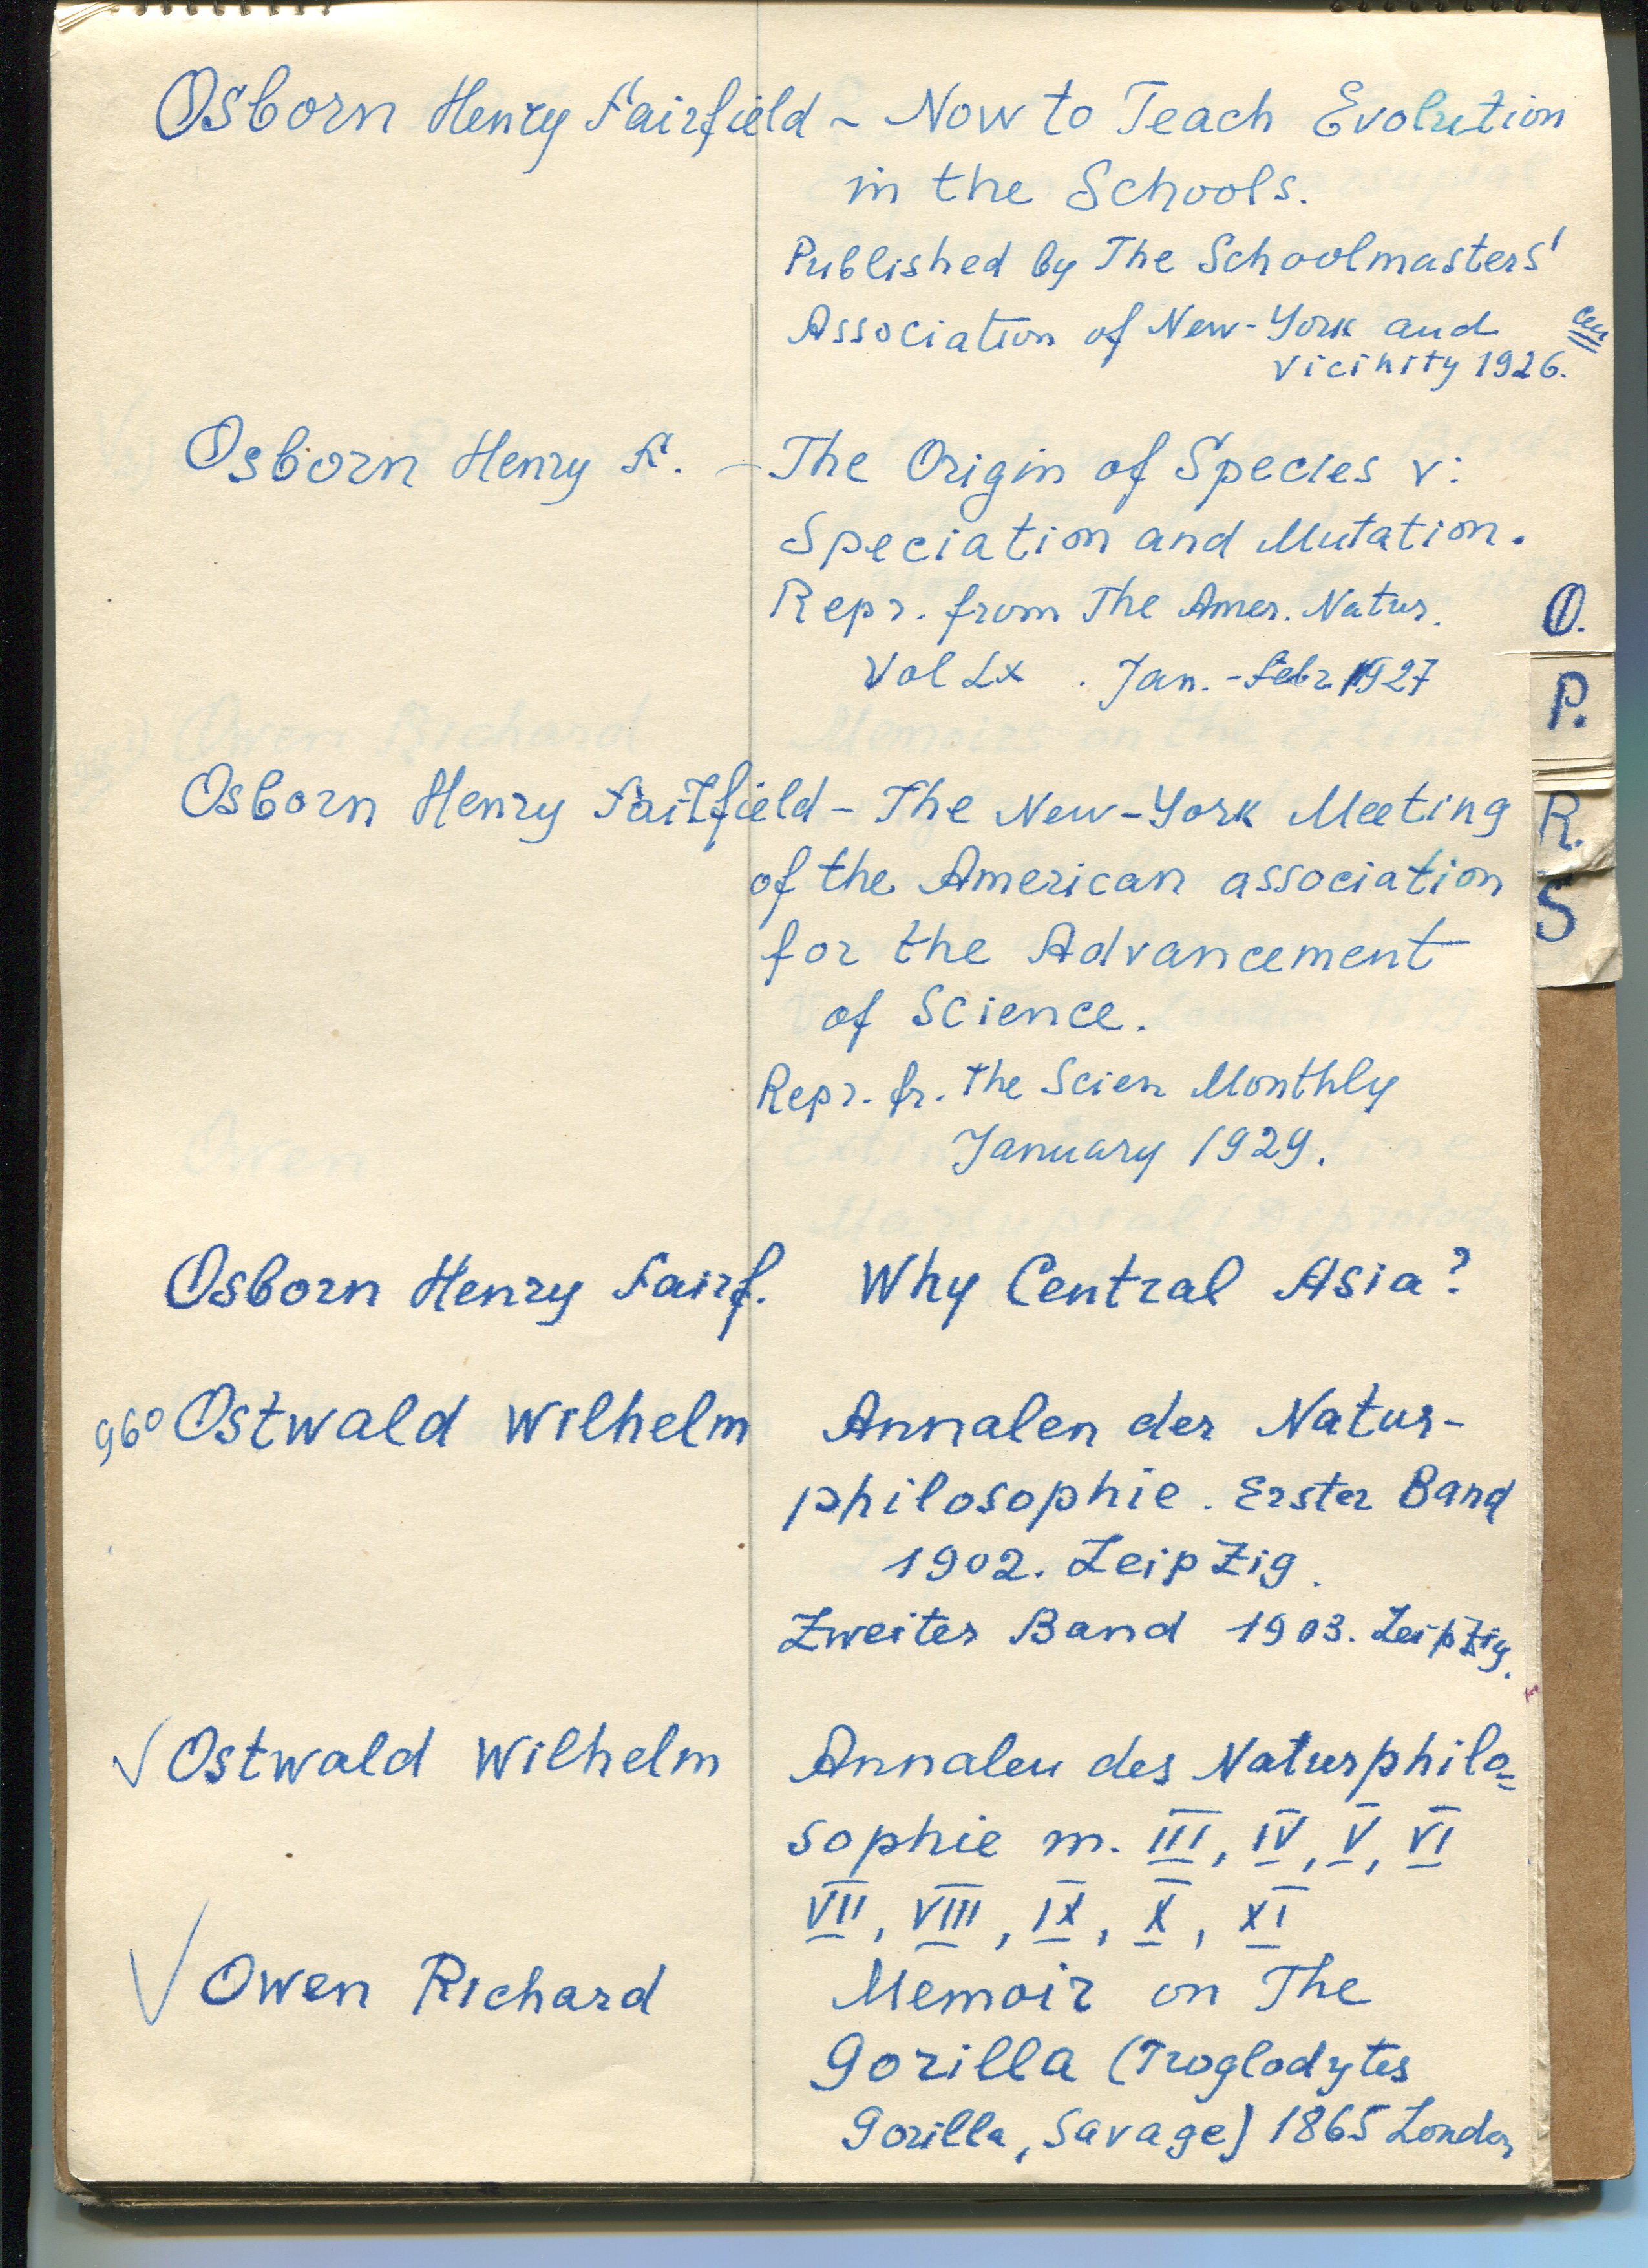 Osborn Henry Fairfield - Now to Teach Evolution
in the Schools.
Published by The Schoolmasters'
Association of New-York and
vicinity 1926.
Osborn Henry F. - The Origin of Species v:
Speciation and Mutation.
Repr. from The Amer. Natur.
Vol Lx . Jan. - Febr 1927
Osborn Henry Fairfield - The New-York Meeting
of the American association
for the Advancement
of Science.
Repr. fr. The Scien Monthly
January 1929.
Osborn Henry Fairf. Why Central Asia?
960 Ostwald Wilhelm Annalen der Natur-
philosophie. Erster Band
1902. Leipzig.
Zweiter Band 1903. Leipzig.
√ Ostwald Wilhelm Annalen des Naturphilo=
sophie m. III, IV, V, VI
VII, VIII, IX, X, XI
√ Owen Richard Memoir on The
Gorilla (Troglodytes
Gorilla, Savage) 1865 London
O.
P.
R.
S